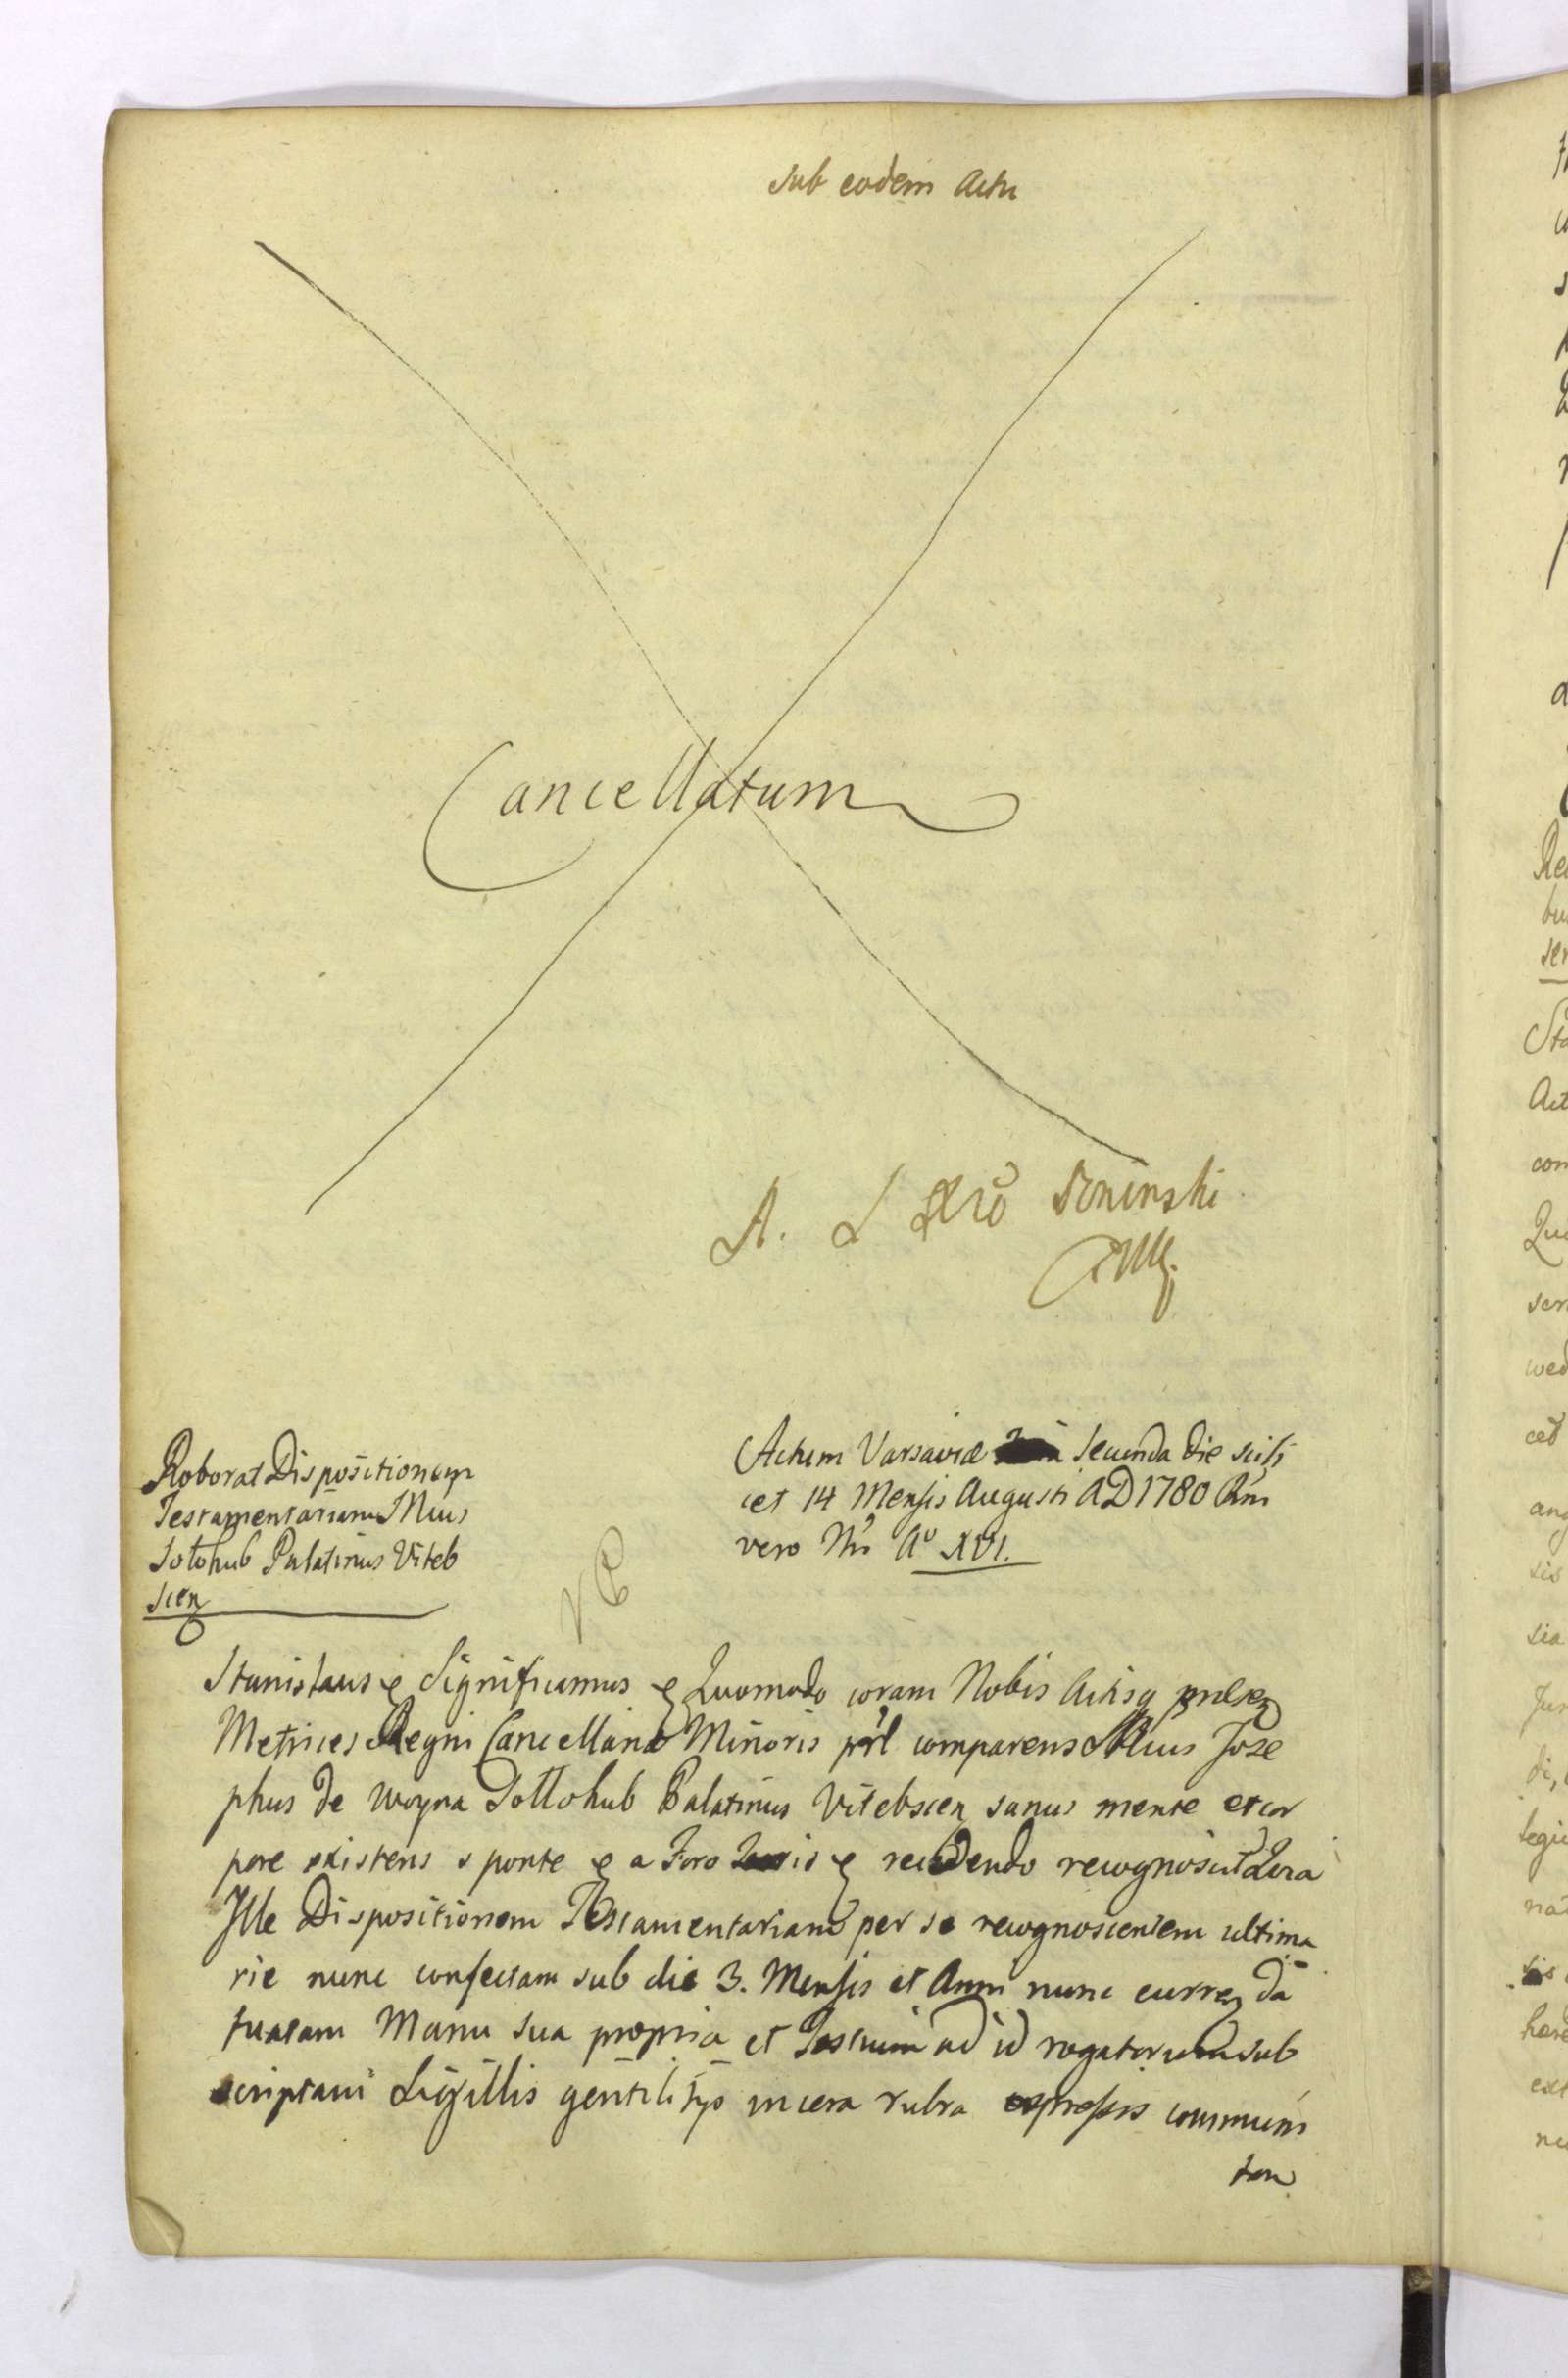 Sub eodem Actu
Cancellatum
A. L Łoninski
Roborat Dispositionem
Testamentariam Mcus
Sołohub Palatinus Viteb
scien
Actum Varsaviæ secunda die scili
cet 14 Mensis Augusti AD 1780 Rni
vero Nri Aº XVI.
Stanislaus Significamus Quomodo coram Nobis Actisq presen
Metrices Regni Cancellariæ Minoris prl comparens Mcus Jose
phus de Woyna Sollohub Palatinus Vitebscien sanus mente et cor
pore existens sponte a Foro recedendo recognoscit
Ille Dispositionem Testamentariam per se recognoscentem ultima
rie nunc confectam sub die 3. Mensis et Anni nunc curren da
tuatam Manu sua propria et Testium ad id rogatorum sub
scriptam Sigillis gentilitys in cera rubra expressis communi
tam